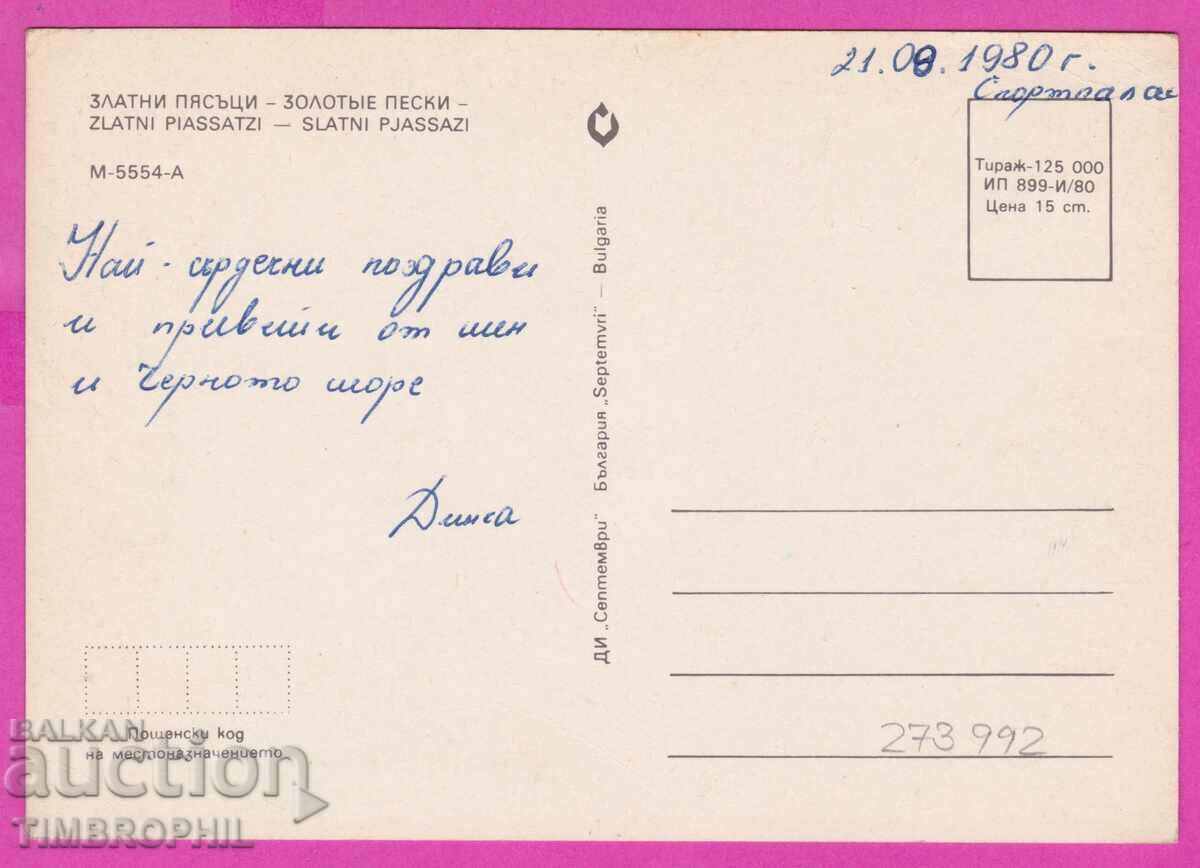 21.08.1980 г.
Спортпалас
ЗЛАТНИ ПЯСЪЦИ – ЗОЛОТЫЕ ПЕСКИ –
ZLATNI PIASSATZI — SLATNI PJASSAZI
М-5554-А
Тираж-125 000
ИП 899-И/80
Цена 15 ст.
Най-сърдечни поздрави
и привети от мен
и Черното море
ДИ „Септември" България „Septemvri" — Bulgaria
Пощенски код
на местоназначението
273 992
BALKAN
auction
TIMBROPHIL